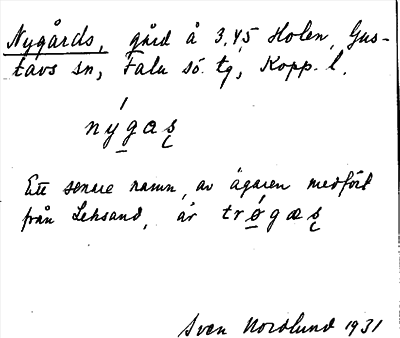 Nygårds, gård å 3.45 Holen, Gus-
tavs sn, Falu sö. tg, Kopp. l.
nýgas̨
Ett senare namn, av ägaren medfört
från Leksand, är trǿgæs̨
Sven Nordlund 1931